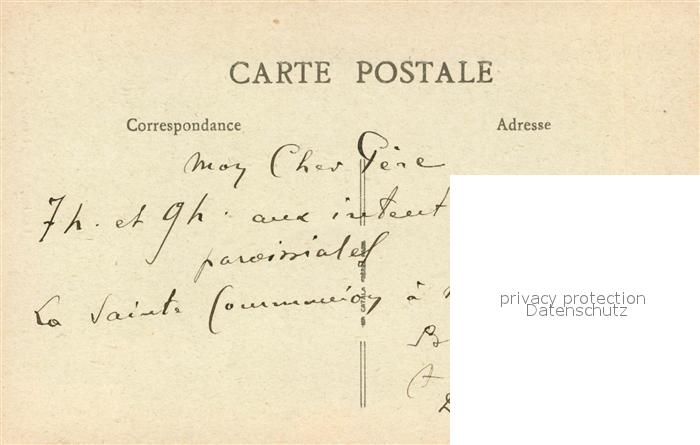 CARTE POSTALE
Correspondance
Adresse
Mon Cher Père
7h. et 9h. aux intent
paroissiales
La Sainte Communion à
privacy protection
Datenschutz